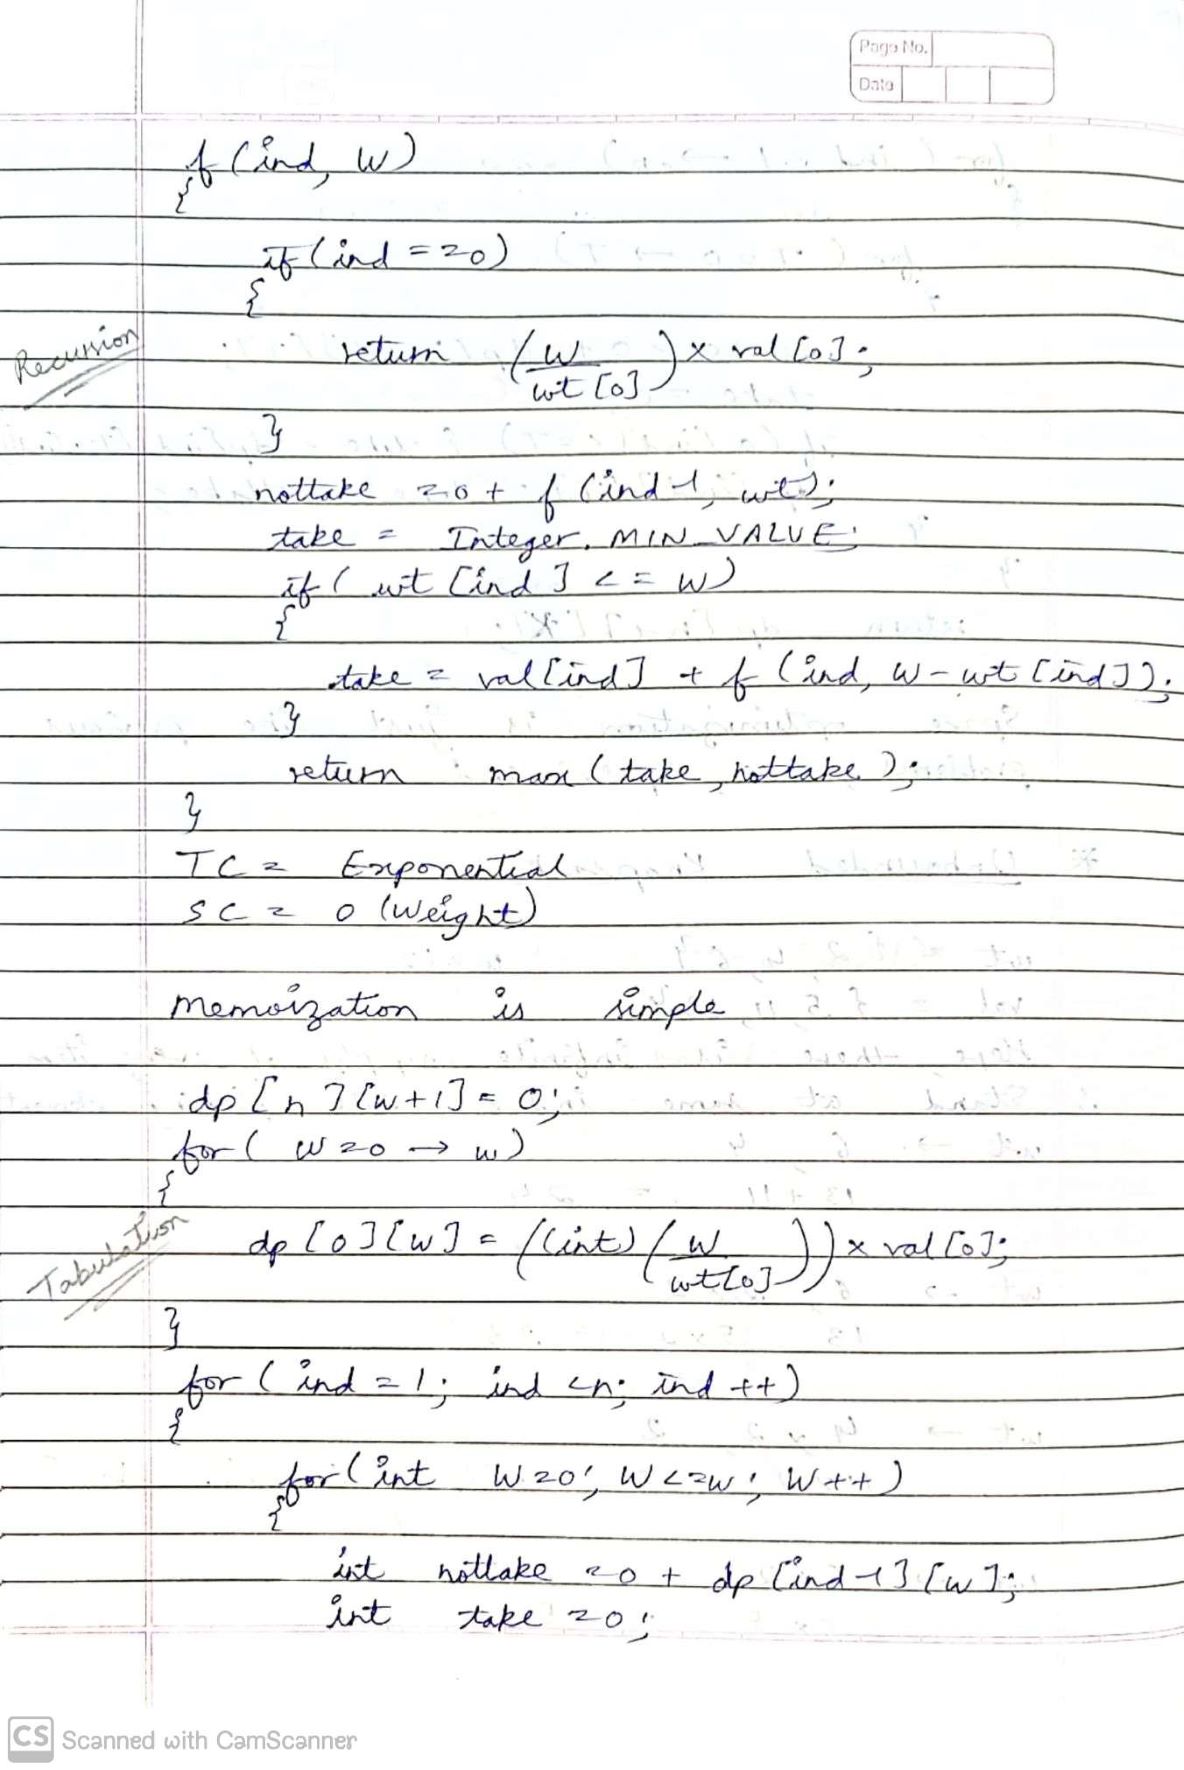 Page No.
Date
f (ind, W)
{
if (ind == 0)
{
Recursion
return (W / wt [0]) x val [0];
}
nottake = 0 + f (ind-1, wt);
take = Integer. MIN_VALUE;
if ( wt [ind] <= W)
{
take = val [ind] + f (ind, W - wt [ind]);
}
return max (take, nottake);
}
TC = Exponential
SC = O (Weight)
Memoization is simple
dp [n] [w+1] = 0;
for ( W = 0 → w)
{
Tabulation
dp [0] [w] = ((int) (W / wt[0])) x val [0];
}
for ( ind = 1; ind < n; ind ++)
{
for (int W = 0; W <= w; W ++)
{
int nottake = 0 + dp [ind-1] [w];
int take = 0;
CS Scanned with CamScanner